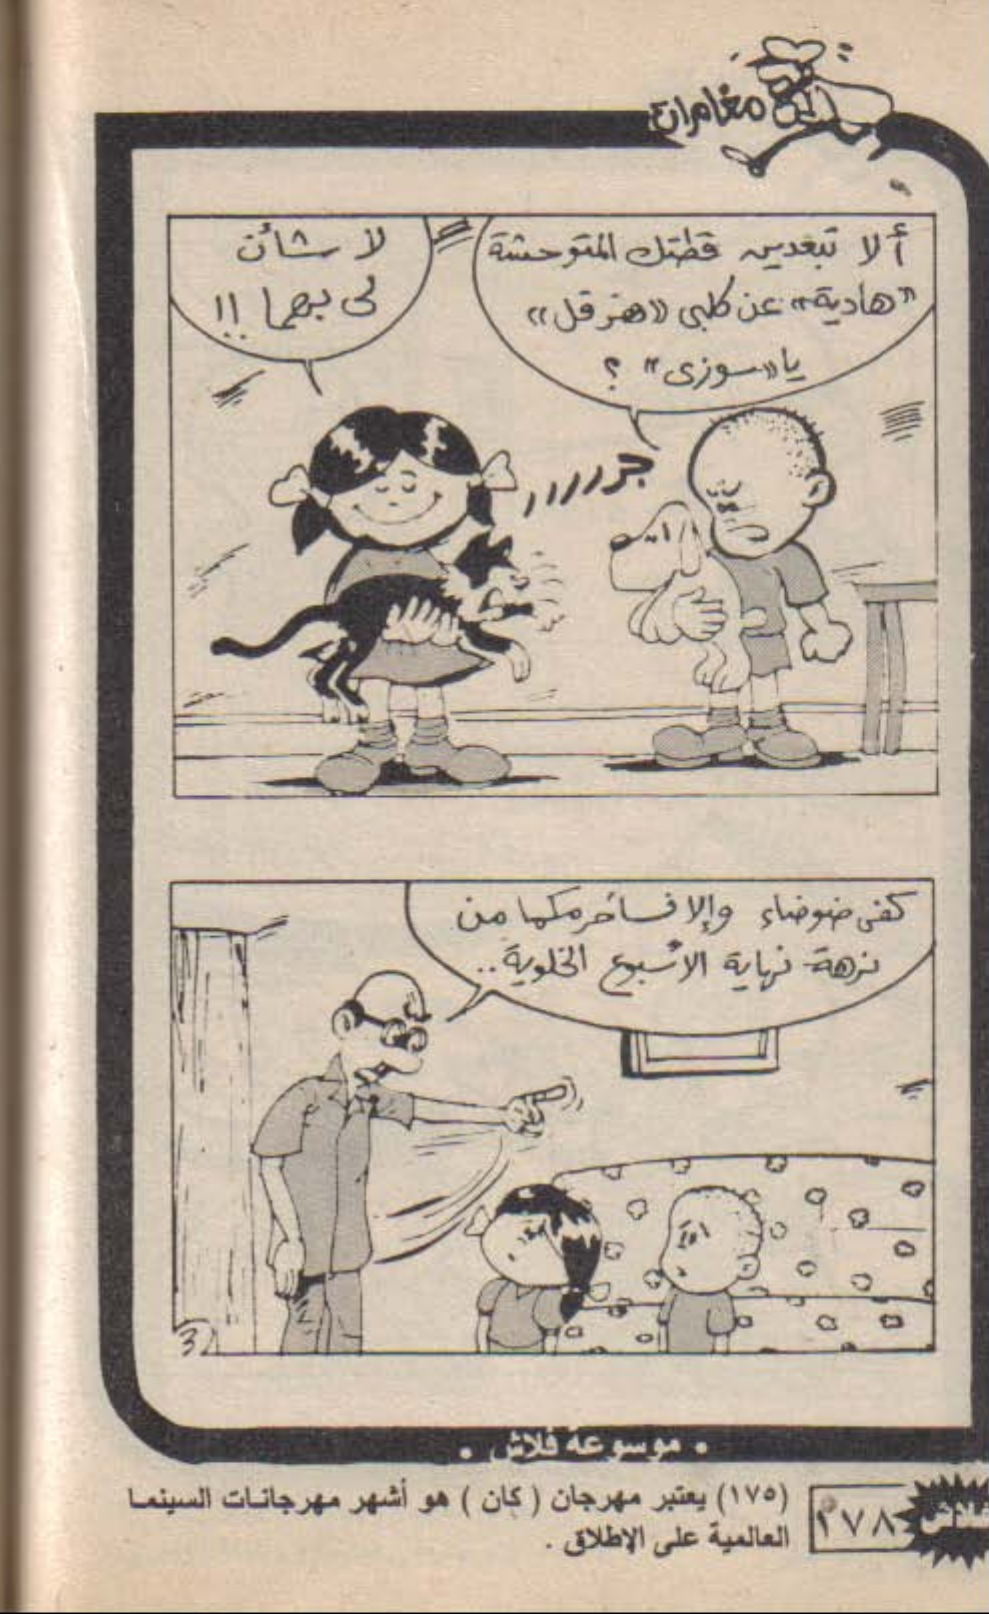 مغامرات
ألا تبعدين قطتك المتوحشة
«هادية» عن كلبى «هرقل»
يا «سوزى» ؟
لا شأن
لى بهما !!
جررررر
كفى ضوضاء وإلا فسأحرمكما من
نزهة نهاية الأسبوع الخلوية..
3
• موسوعة فلاش •
(١٧٥) يعتبر مهرجان ( كان ) هو أشهر مهرجانات السينما
العالمية على الإطلاق .
فلاش